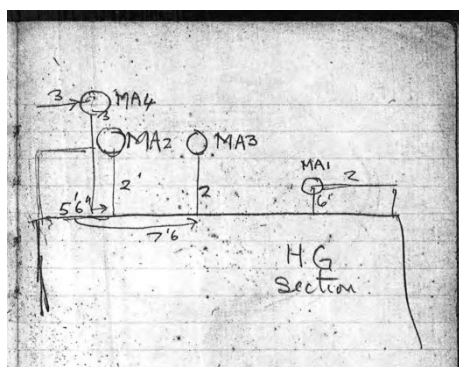 3 MA4
3
MA2 MA3
MA1
2' 2 2
6"
5'6"
7'6
H G
Section